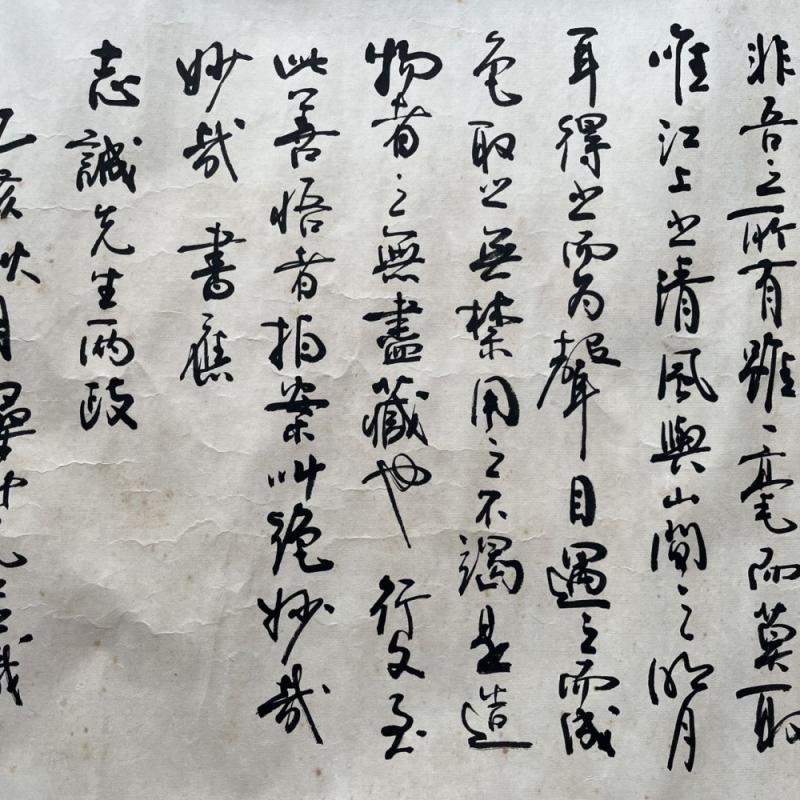 非吾之所有雖一毫而莫取
唯江上之清風與山間之明月
耳得之而為聲目遇之而成
色取之無禁用之不竭是造
物者之無盡藏也 行文至
此善悟者拍案叫絕妙哉
妙哉 書應
志誠先生兩政
乙亥秋月